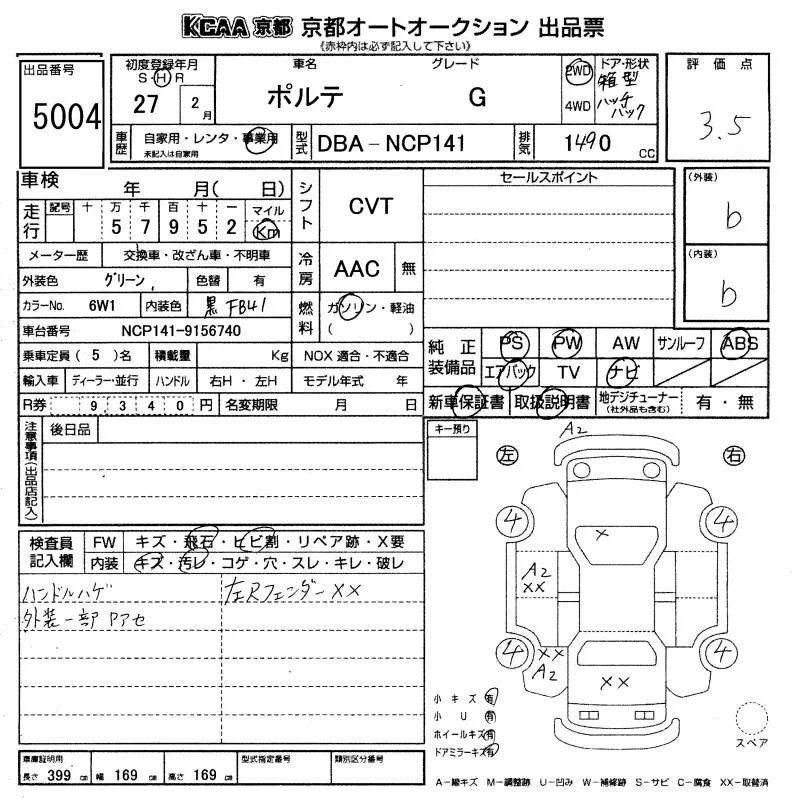 KCAA 京都 京都オートオークション 出品票
《赤枠内は必ず記入して下さい》
出品番号
5004
初度登録年月
S・H・R
27 2月
車名 グレード
ポルテ G
2WD
4WD
ドア・形状
箱型
ハッチ
バック
評価点
3.5
車歴 自家用・レンタ・事業用
未記入は自家用
型式 DBA-NCP141
排気 1490 CC
車検 年 月( 日)
走行 記号 十 万 千 百 十 一 マイル
5 7 9 5 2 Km
シフト CVT
セールスポイント
(外装)
b
(内装)
b
メーター歴 交換車・改ざん車・不明車
冷房 AAC 無
外装色 グリーン 色替 有
カラーNo. 6W1 内装色 黒 FB41
燃料 ガソリン・軽油
( )
車台番号 NCP141-9156740
乗車定員 (5)名 積載量 Kg NOX 適合・不適合
輸入車 ディーラー・並行 ハンドル 右H・左H モデル年式 年
R券 9340円 名変期限 月 日
純正装備品 PS PW AW サンルーフ ABS
エアバック TV ナビ
新車保証書 取扱説明書 地デジチューナー
(社外品も含む)
有・無
注意事項(出品店記入)
後日品
キー預り
A2
左 右
4 4
×
A2
××
4 4
××
A2
××
検査員記入欄 FW キズ・飛石・ヒビ割・リペア跡・X要
内装 キズ・汚レ・コゲ・穴・スレ・キレ・破レ
ハンドルハゲ 左Rフェンダー××
外装一部 Pアセ
小キズ 有
小U 有
ホイールキズ 有
ドアミラーキズ 有
スペア
車庫証明用
長さ 399 cm 幅 169 cm 高さ 169 cm
型式指定番号 類別区分番号
A-線キズ M-調整跡 U-凹み W-補修跡 S-サビ C-腐食 XX-取替済